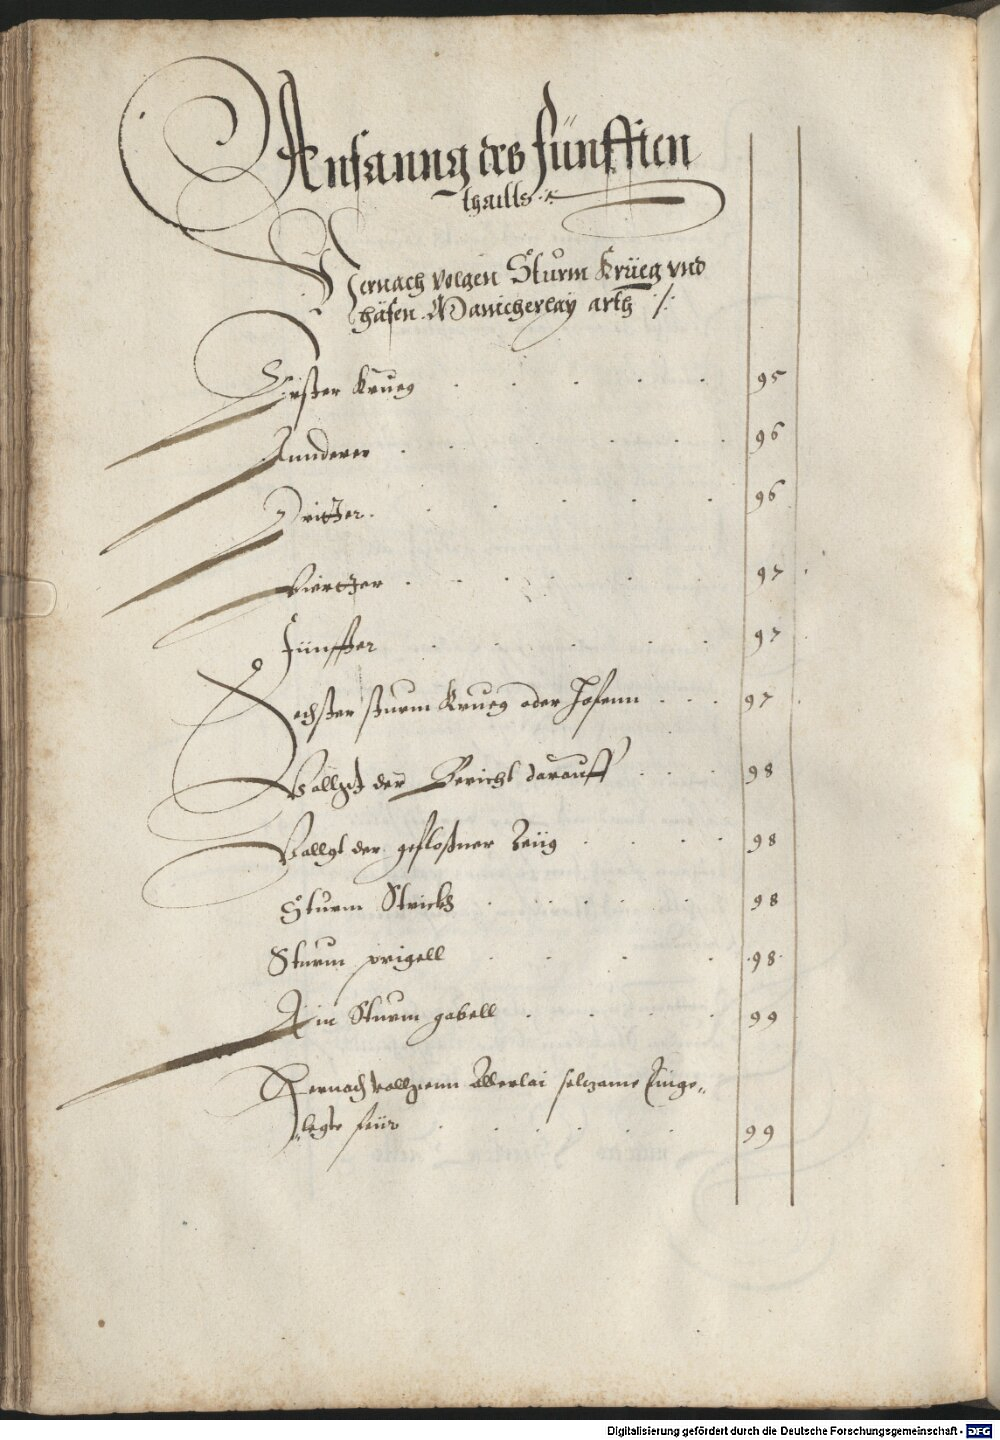 Anfanng des fünfften
thaills
Hernach volgen Sturm Krüeg vnd
häfen Manicherlay arth
Erster Krueg . . . . . 95
Annderer . . . . . . 96
Dritter . . . . . 96
Viertter . . . . . . 97
Fünffter . . . . . 97
Sechster sturm Krueg oder Hafenn . . . 97
Vollgt der Bericht darauff . . . 98
Vollgt der geflosner Zeüg . . . . 98
Sturm Strickh . . . . . 98
Sturm prigell . . . . 98
Ain Sturm gabell . . . . 99
Hernach vollgenn Allerlai selczame Einge„
„legte feür . . . . . 99
Digitalisierung gefördert durch die Deutsche Forschungsgemeinschaft - DFG